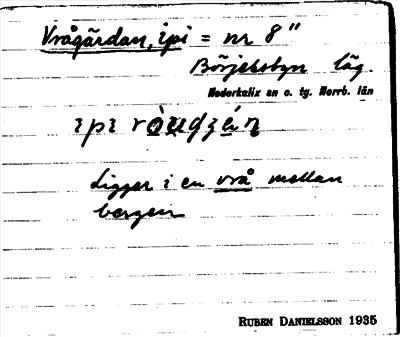 Vrågärdan, ipi = nr 8"
Börjelsbyn läg.
Nederkalix sn o. tg. Norrb. län
ıpı
Ligger i en vrå mellan
bergen
RUBEN DANIELSSON 1935